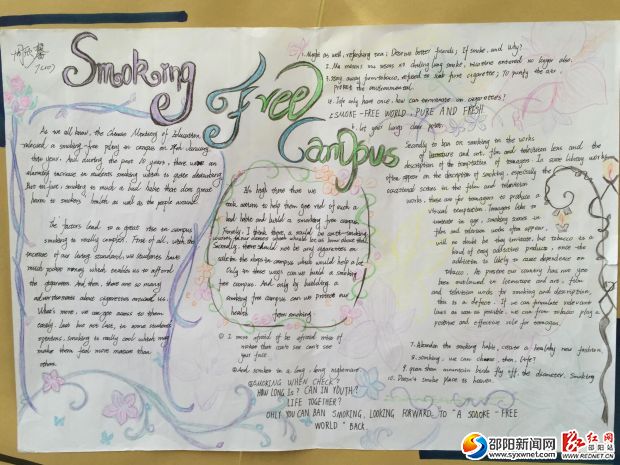 Smoking
Free
Campus
As we all know, the Chinese Ministry of Education
released a smoking-free policy in campus on 29th January
this year. And during the past 10 years, there was an
alarming increase in students smoking which is quite disturbing
But in fact, smoking is such a bad habit that does great
harm to smokers' health as well as the people around.
The factors lead to a great rise in campus
smoking is really complex. First of all, with the
increase of our living standard, we students have
much pocket money which enables us to afford
the cigarettes. And then, there are so many
advertisements about cigarettes around us.
What's more, we can get access to them
easily. Last but not least, in some students
opinions, smoking is really cool which may
make them feel more mature than
others.
It's high time that we
took actions to help them get rid of such a
bad habit and build a smoking free campus.
Firstly, I think there should be anti-smoking
Secondly, there should not be any cigarettes on
sale in the shops in campus which would help a lot.
Only in these ways can we build a smoking
free campus. And only by building a
smoking free campus can we protect our
health from smoking
your face.
And smoke in a long, long nightmare
SMOKING WHEN CHECK?
HOW LONG IS? CAN IN YOUTH?
LIFE TOGETHER?
ONLY YOU CAN BAN SMOKING, LOOKING FORWARD TO "A SMOKE-FREE
WORLD" BACK.
1. Might as well, refreshing tea; Deserve better friends; If smoke, and why?
3. Stay away from tobacco, refused to suck fume cigarette; To purify the air,
Protect the environmental.
4. Life only have once, how can terminate on cigarettes?
5. SMOKE-FREE WORLD, PURE AND FRESH.
6. Let your lungs clear point.
Secondly to ban on smoking in the works
of literature and art, film and television lens and the
description of the temptation of teenagers. In some literary works
often appear on the description of smoking, especially the
occasional scenes in the film and television
works, these are for teenagers to produce a
virtual temptation. Teenagers like to
imitate to age, smoking scenes in
film and television works often appear,
will no doubt be they imitate, but tobacco is a
kind of easy addictive products, once the
addiction is likely to cause dependence on
tobacco. At present our country has not yet
been outlawed in literature and art, film
and television works for smoking and description,
this is a defect. If we can formulate relevant
laws as soon as possible, we can from tobacco play a
positive and effective role for teenagers.
7. Abandon the smoking habit, create a healthy new fashion.
8. Smoking, we can choose, then, life?
9. green then mountain birds fly off the diameter, Smoking
10. Doesn't smoke place is heaven.
邵阳新闻网
www.syxwnet.com
红网
邵阳站
WWW.REDNET.CN